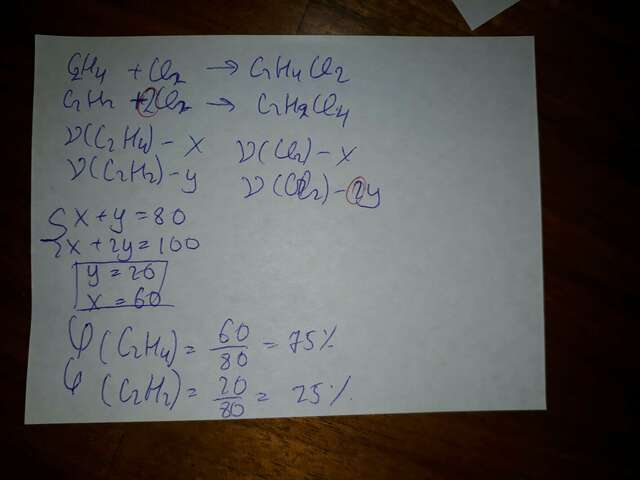 C2H4 + Cl2 → C2H4Cl2
C2H2 + 2Cl2 → C2H2Cl4
ν(C2H4) - x ν(Cl2) - x
ν(C2H2) - y ν(Cl2) - 2y
{ x + y = 80
x + 2y = 100
y = 20
x = 60
φ (C2H4) = 60/80 = 75%
φ (C2H2) = 20/80 = 25%.